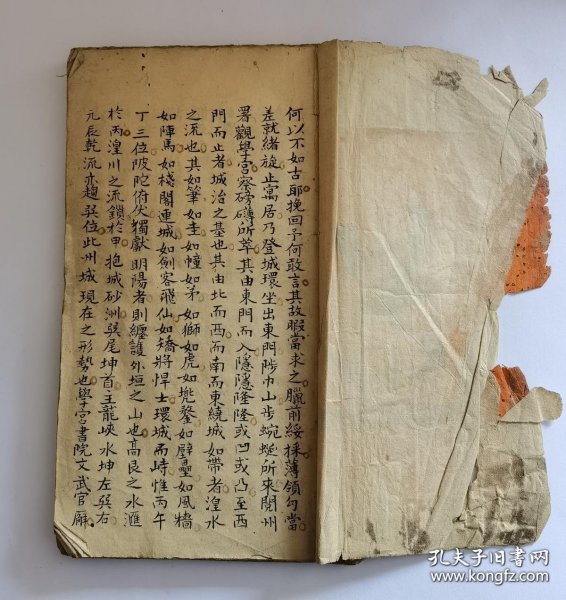 何以不如古耶挽回予何敢言其故暇當求之臘前綏採薄領勾當
差就緒旋止寓居乃登城環坐出東門陟巾山步蜿蜒所來閱州
署觀學宮察磅礴所萃其由東門而入隱隱隆隆或凹或凸至西
門而止者城治之基也其由北而西而南而東繞城如帶者湟水
之流也其如筆如圭如幢如茅如獅如虎如旄鏊如壁壘如風檣
如陣馬如棧閣連城如劍客飛仙如矯將悍士環城而峙惟丙午
丁三位陂陀俯伏獨獻明陽者則纏護外垣之山也高良之水滙
於丙湟川之流鎖於甲抱城砂洲巽尾坤首主龍峽水坤左巽右
元辰乾流亦趨巽位此州城現在之形勢也學宮書院文武官廨
孔夫子旧书网
www.kongfz.com